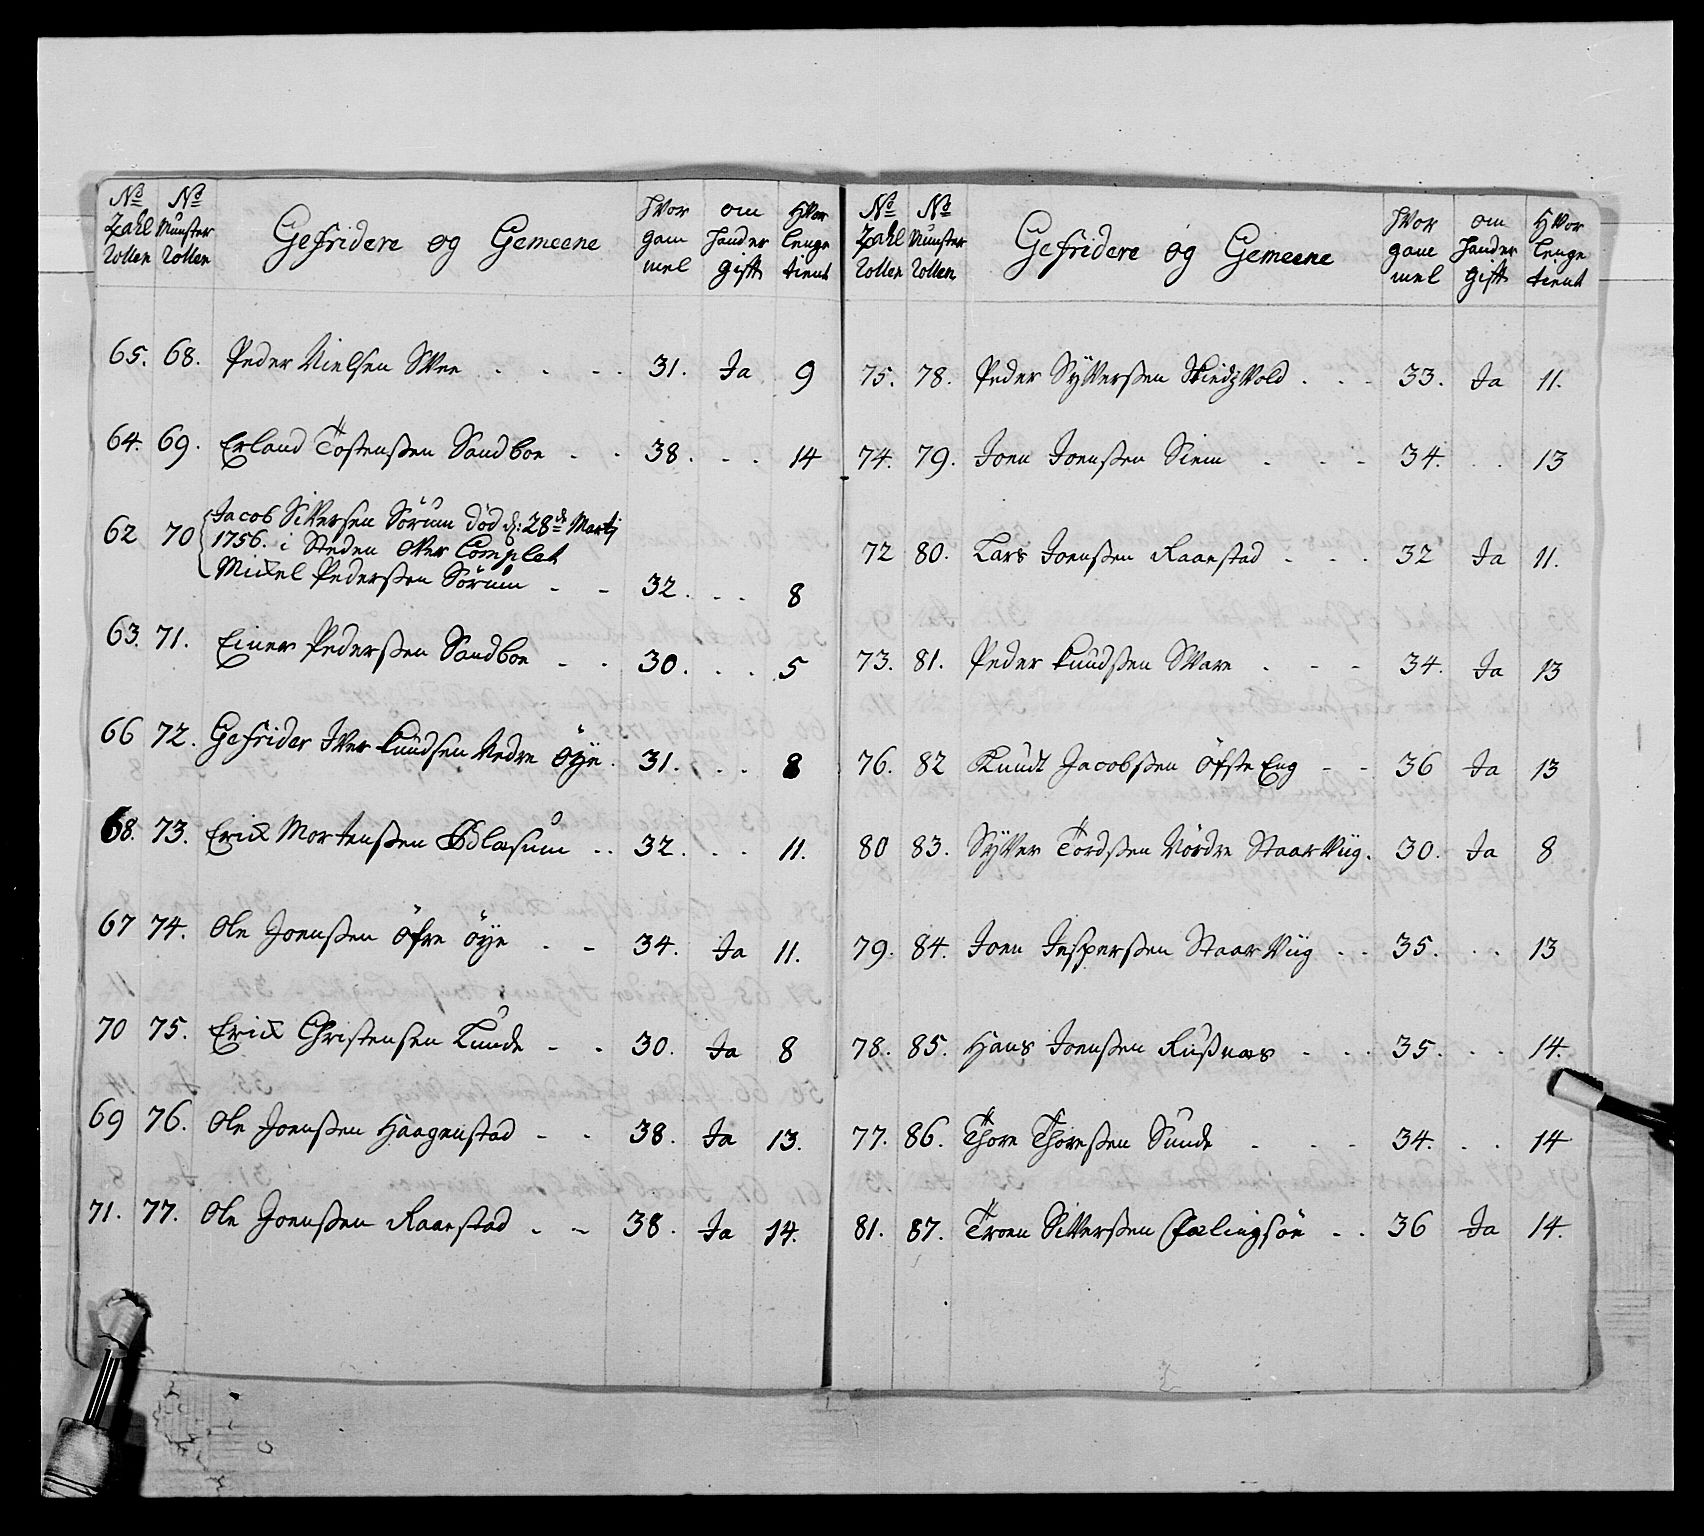 No Zahl Rollen | No Mŭnster Rollen | Gefridere og Gemeene | Hvor gammel | om hand er gift | Hvor lenge tient
65. 68. Peder Nielsen Svee . . . . 31. Ja 9
64. 69. Erland Tostenßen Sandboe - - 38. . . 14
62 70 Jacob Siversen Sörum död d: 28de Martj
1756. i Steden Over Complet
Mickel Pederßen Sörŭm - - 32. . . 8
63. 71. Einer Pederßen Sandboe - - 30. . . 5
66 72. Gefrider Iver Knŭdsen Nedre Öÿe . 31. . . 8
68. 73. Erick Mortenßen Ødlasŭm . . 32. . . 11.
67 74. Ole Joenßen Öfre Öÿe - - 34. Ja 11.
70 75. Erick Christensen Lŭnde - - 30. Ja 8
69 76. Ole Joenßen Haagenstad - - 38. Ja 13.
71. 77. Ole Joenßen Raanstad - - 38. Ja 14.
No Zahl Rollen | No Mŭnster Rollen | Gefridere og Gemeene | Hvor gammel | om hand er gift | Hvor lenge tient
75. 78. Peder Sÿverßen . . - 33. Ja 11.
74. 79. Joen Joenßen Siem - - - 34. . . 13
72 80. Lars Joenßen Raanstad - - . 32 Ja 11.
73. 81. Peder Knŭdßen Svare . - - 34. Ja 13
76. 82 Knŭdt Jacobßen Öfste Eng - - 36 Ja 13
80 83. Sÿver Tordßen Nördre Staarviig . 30. Ja 8
79. 84. Joen Jesperßen Staarviig . . 35. . . 13
78. 85. Hans Joenßen Rŭßnæs - . . 35. . . 14.
77. 86. Thore Thoreßen Sŭnde . - - 34. . . 14
81. 87. Troen Siverßen Fælingsöe . . 36 Ja 14.